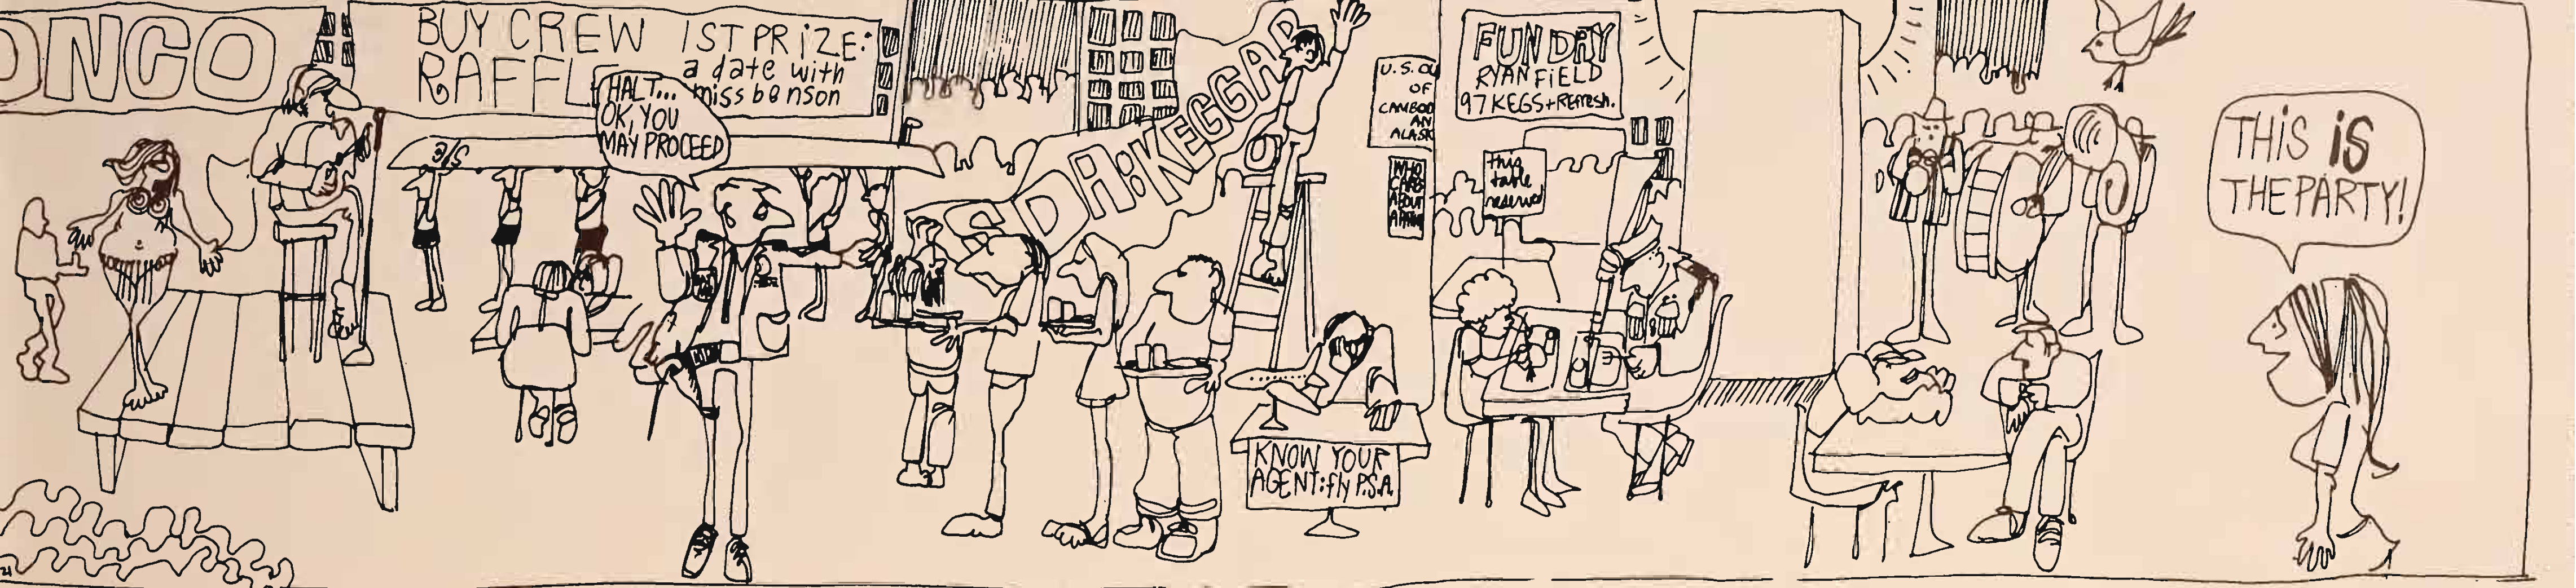 ONCO
BUY CREW
RAFFL
1ST PRIZE:
a date with
miss benson
HALT...
OK, YOU
MAY PROCEED
SDA: KEGGAR
U.S. OU
OF
CAMBOD
AN
ALASK
WHO
CARES
ABOUT
FUN DAY
RYAN FIELD
97 KEGS + REFresh.
this
table
reserved
KNOW YOUR
AGENT: fly P.S.A.
THIS IS
THE PARTY!